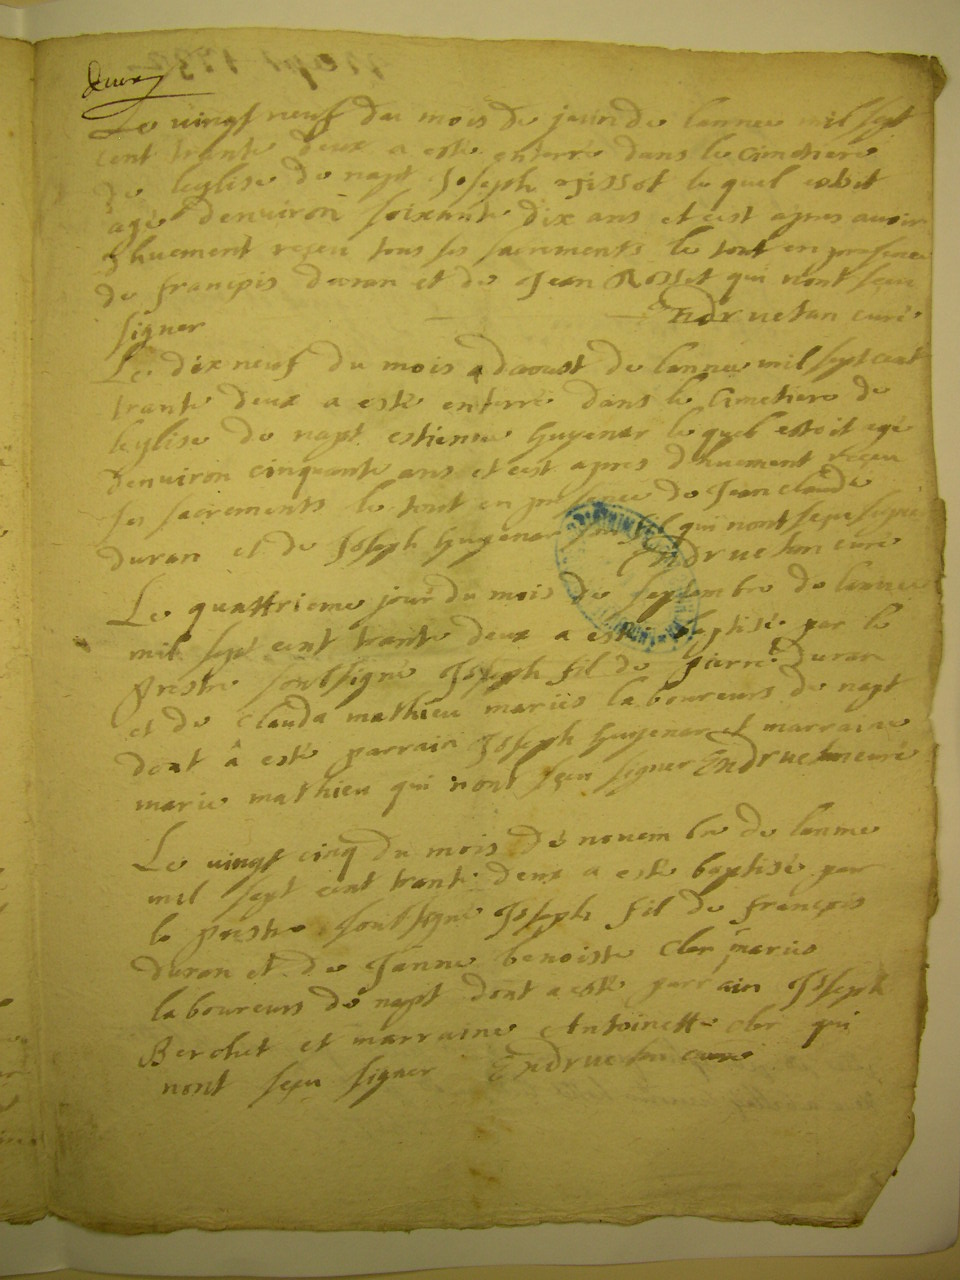 deux
Le vingt neuf du mois de juin de lannee mil sept
cent trante deux a esté enterré dans le cimetiere
de leglise de napt Joseph le quel estoit
agé denviron soixante dix ans et cest apres avoir
dhuement reçeu tous ses sacrements le tout en presence
de françois duran et de Jean Rosset qui nont sçeu
signer Endruetan curé
Le dix neuf du mois daoust de lannee mil sept cent
trante deux a esté enterré dans le cimetiere de
leglise de napt estienne Guyenar le quel estoit agé
denviron cinquante ans et cest apres dhuement reçeu
ses sacrements le tout en presence de Jean claude
duran et de Joseph Guyenar qui nont sçeu signer
Endruetan curé
Le quattrieme jour du mois de septembre de lannee
mil sept cent trante deux a esté baptisé par le
prestre soussigné Joseph fil de pierre duran
et de clauda mathieu mariés laboureurs de napt
dont a esté parrain Joseph Guyenar et marraine
marie mathieu qui nont sçeu signer Endruetan curé
Le vingt cinq du mois de novembre de lannee
mil sept cent trante deux a esté baptisé par
le prestre soussigné Joseph fil de françois
duran et de Janne benoiste mariés
laboureurs de napt dont a esté parrain Joseph
Berchet et marraine Antoinette qui
nont sçeu signer Endruetan curé